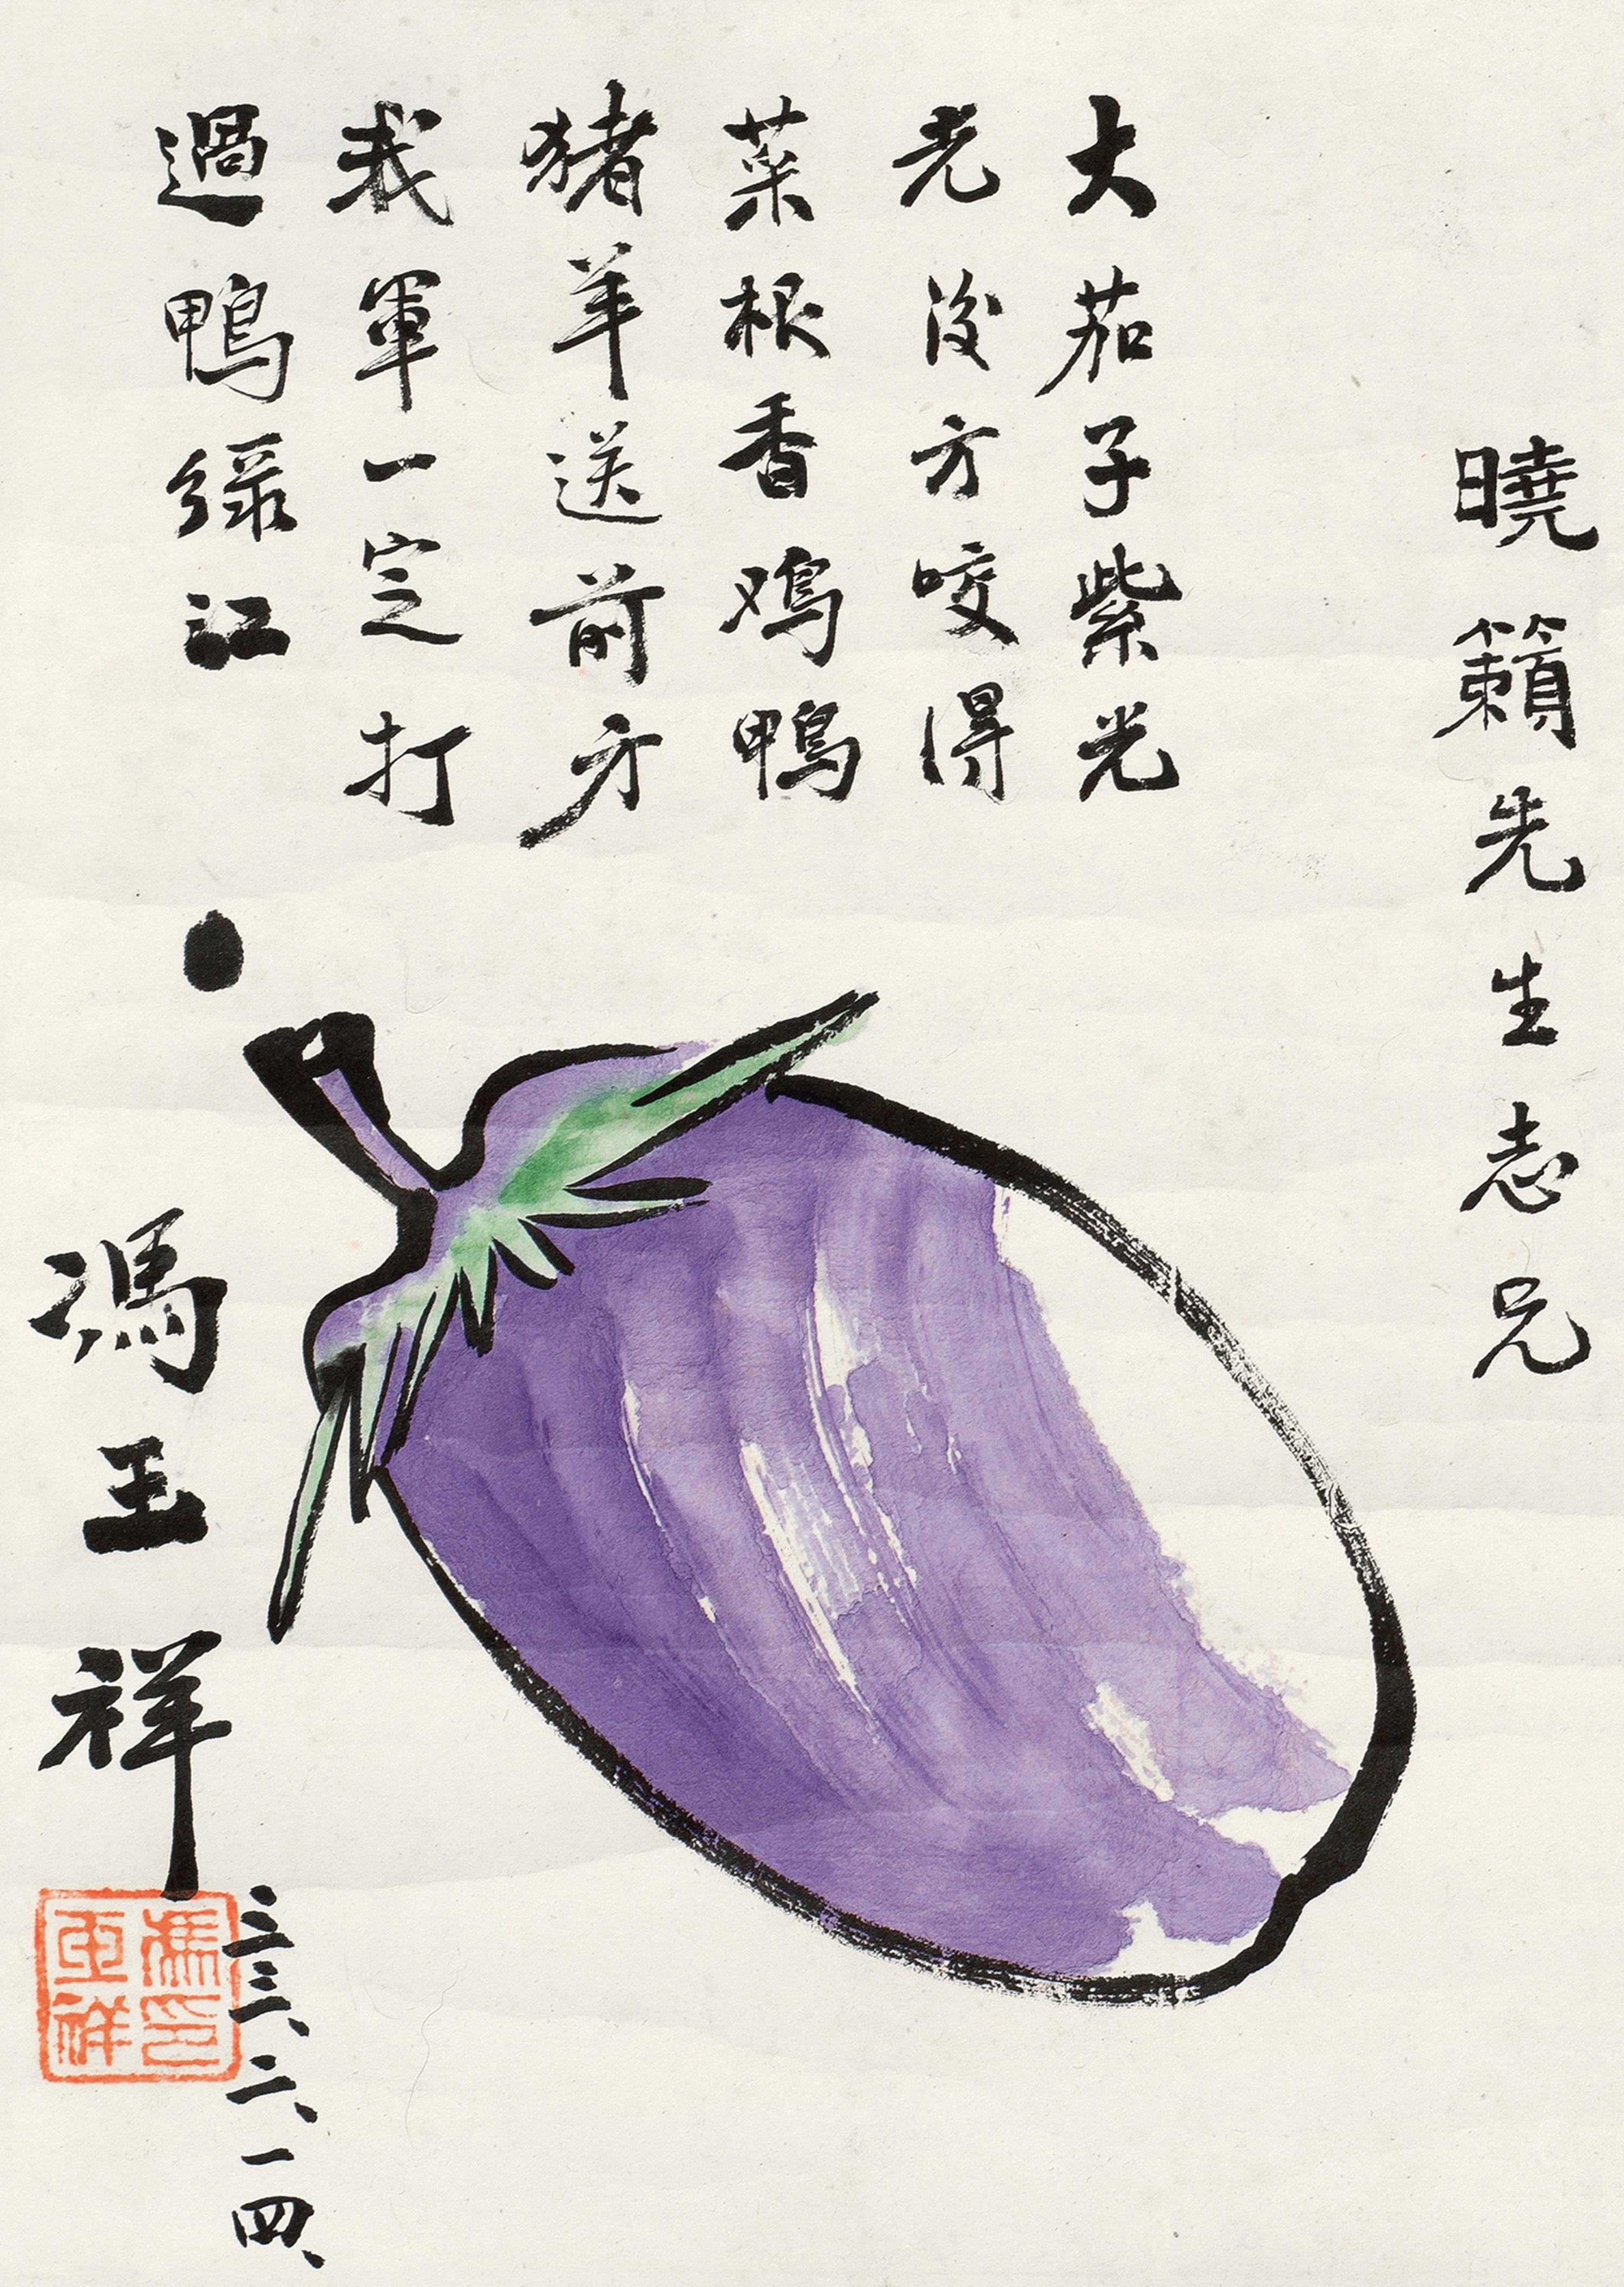 曉籟先生志兄
大茄子紫光
光後方咬得
菜根香鸡鴨
猪羊送前方
我軍一定打
過鴨緑江
馮玉祥
三三、二、一四、
馮印
玉祥